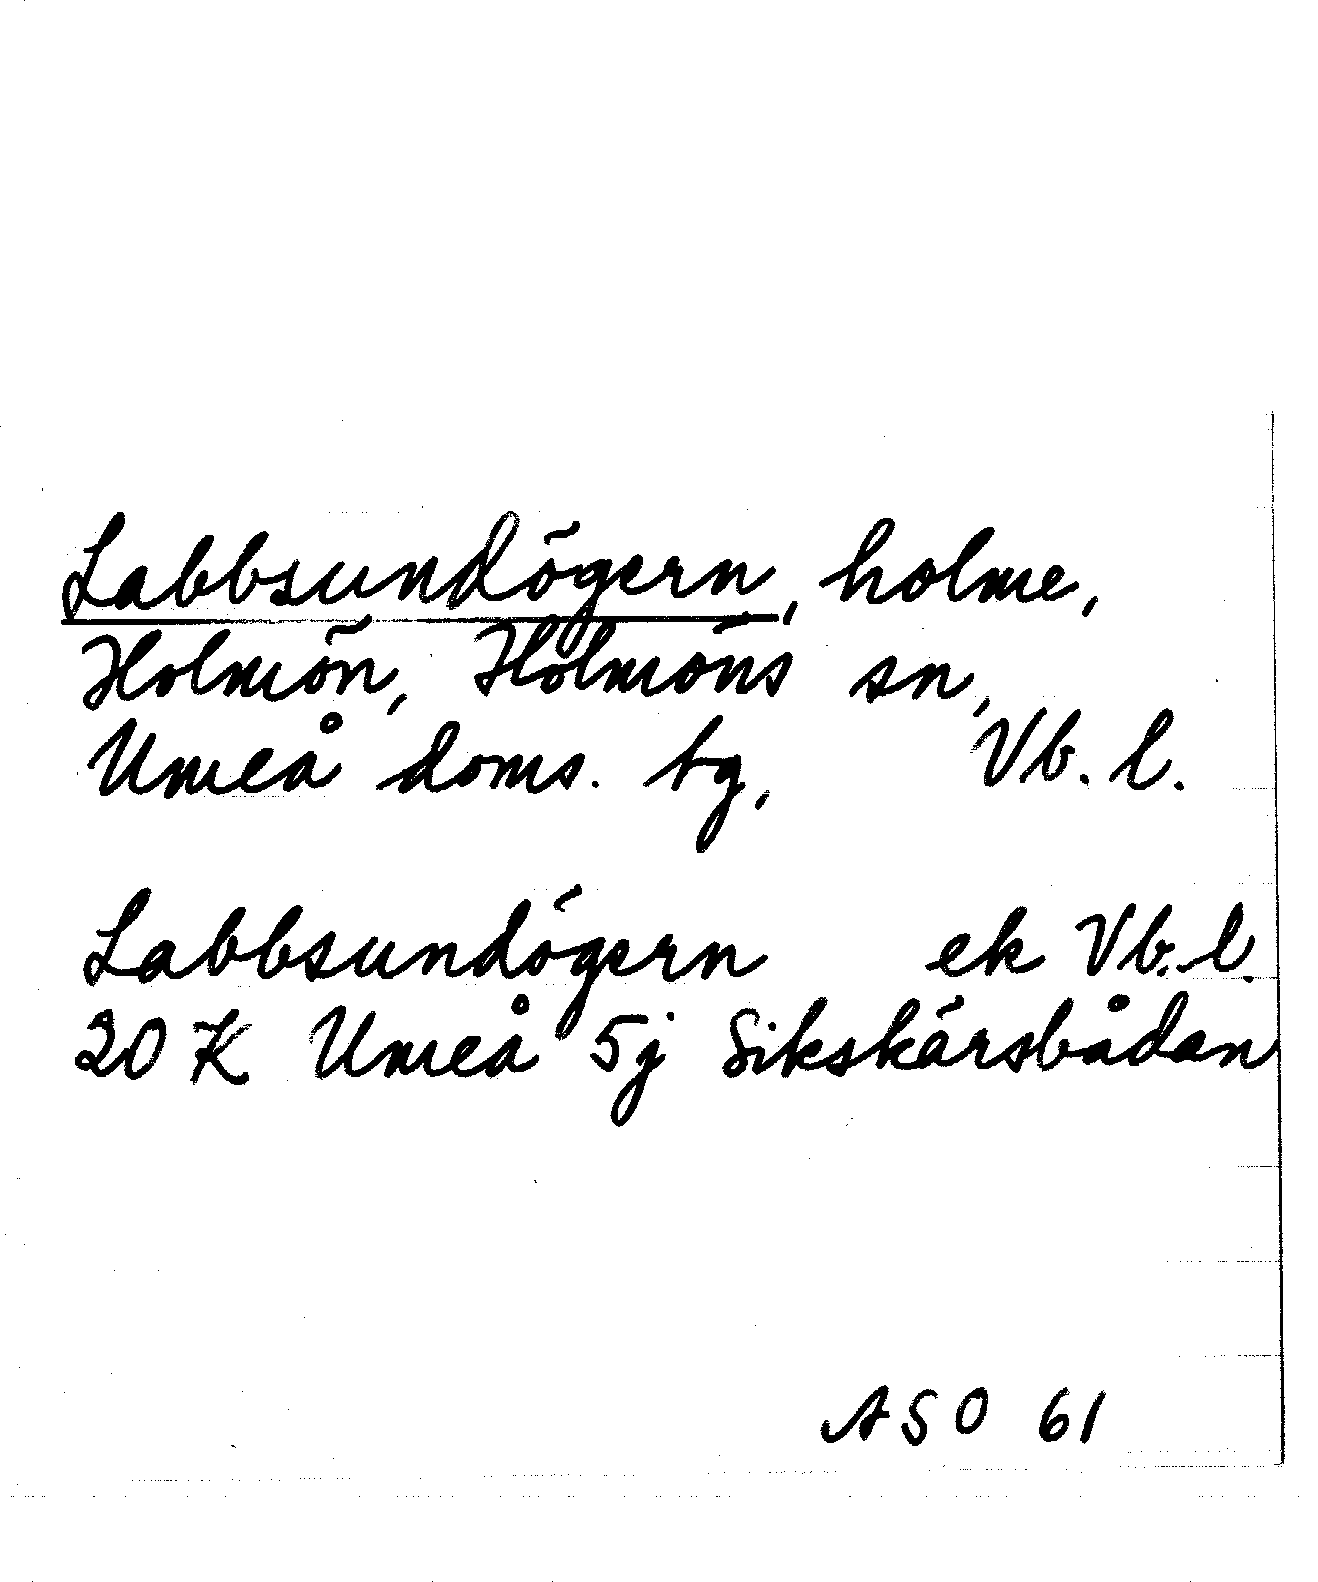 Labbsundögern, holme,
Holmön, Holmöns sn,
Umeå doms. tg, Vb. l.
Labbsundögern ek Vb. l.
20 K Umeå 5j Sikskärsbådan
ASO 61